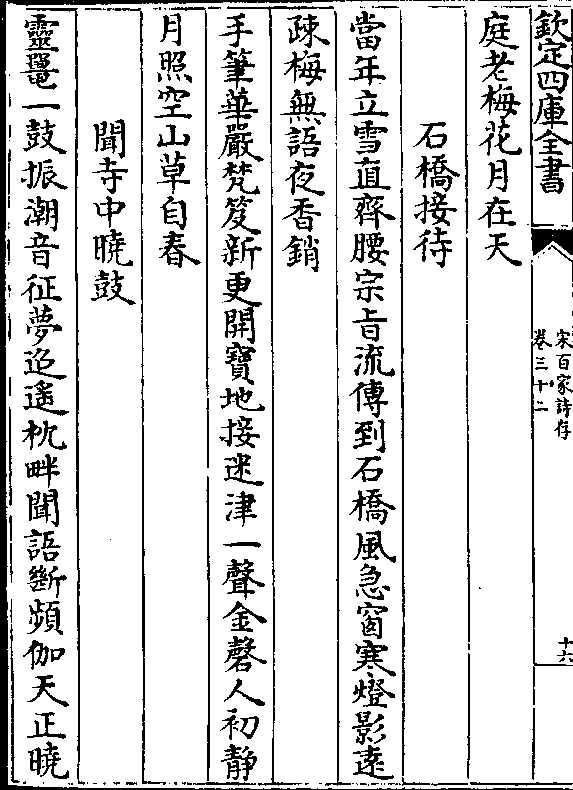 欽定四庫全書
宋百家詩存
卷三十二
十六
庭老梅花月在天
石橋接待
當年立雪直齊腰宗旨流傳到石橋風急窗寒燈影遠
疎梅無語夜香銷
手筆華嚴梵筴新更開寶地接迷津一聲金磬人初静
月照空山草自春
聞寺中曉鼓
靈鼉一鼓振潮音征夢迢遥枕畔聞語斷頻伽天正曉